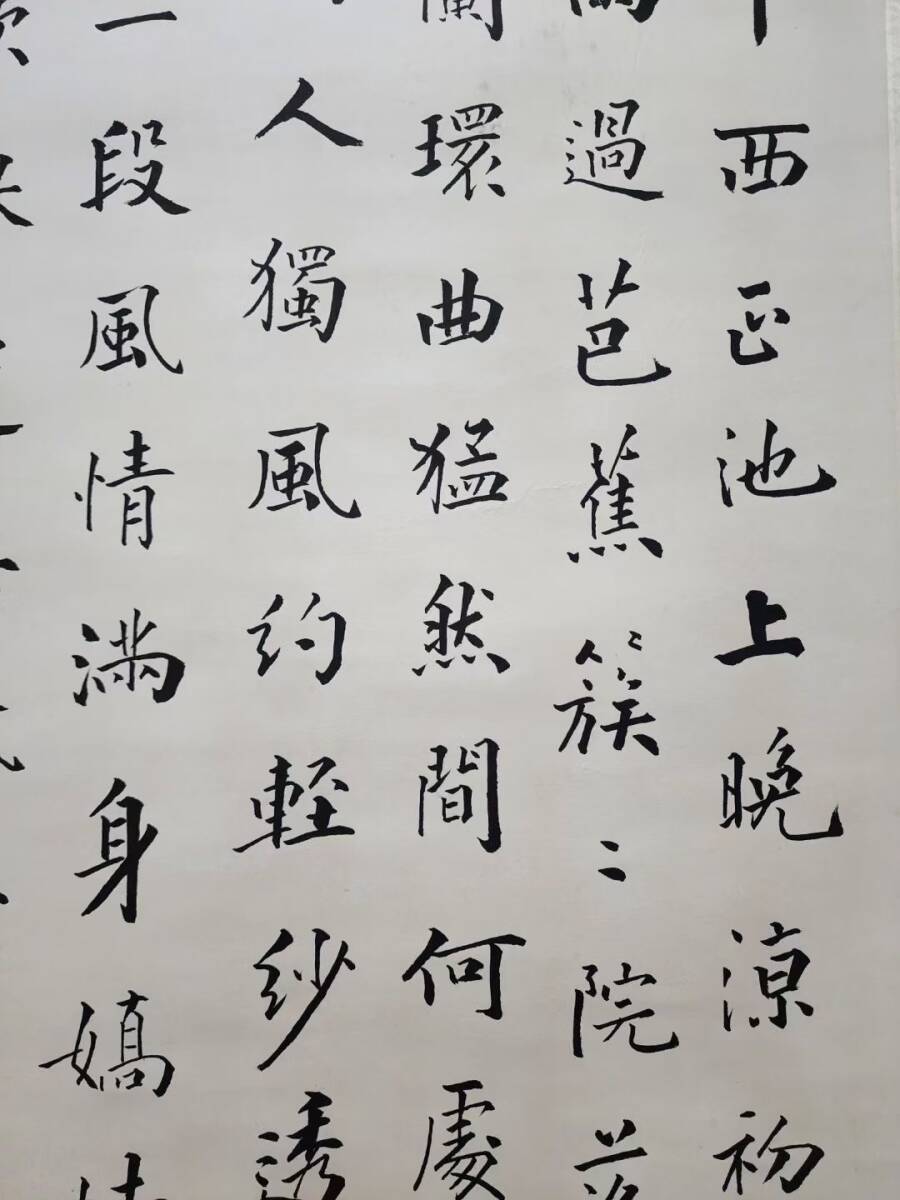 西正池上晚涼初
過芭蕉簇〻院落
環曲猛然間何處
人獨風約輕紗透
一段風情滿身嬌